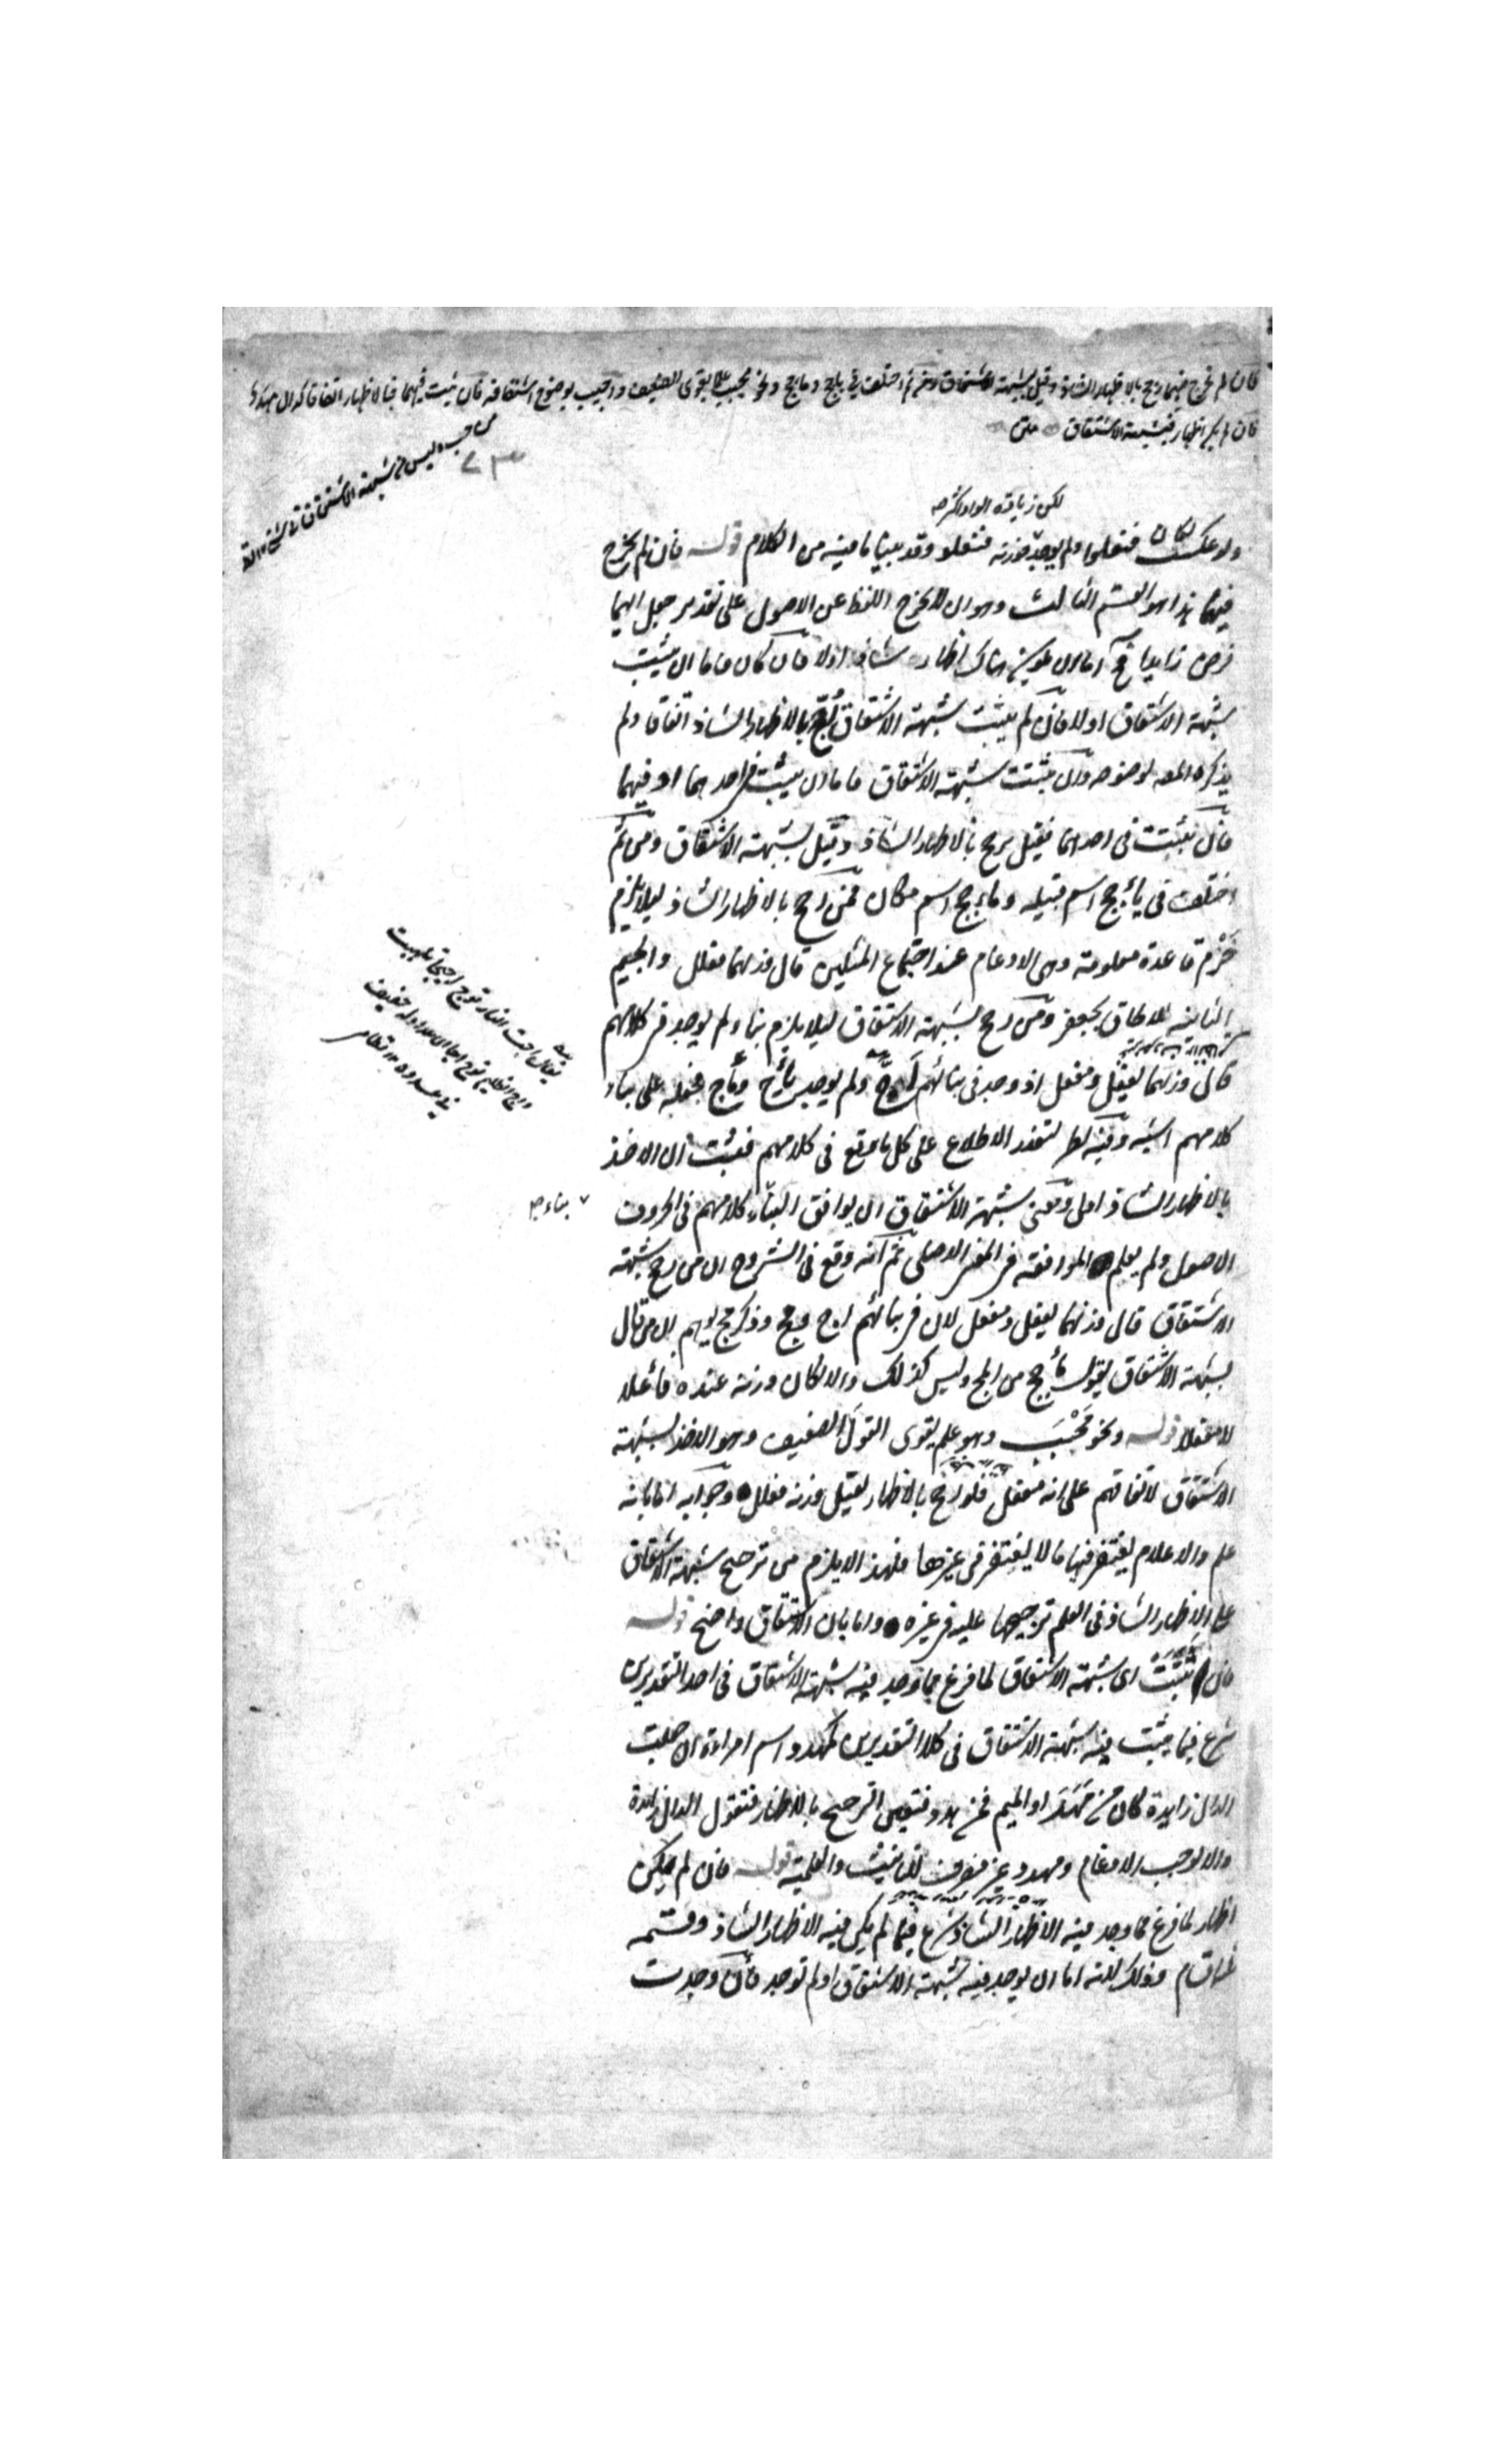 فان لم تخرج فيهما رجح بالاظهار الشاذ وقيل بشبهة الاشتقاق ومن ثم اختلف في ياجج وماجج ونحو محبب علما يقوى الضعيف واجيب بوضوح اشتقاقه فان ثبتت فيهما فبالاظهار اتفاقا كدال مهدد
فان لم يكن اظهار فبشبهة الاشتقاق متن
لكن زيادة الواو اكثر
ولو عكس لكان فنعلوا ولم يوجد فوزنه فنعلو وقد بينا ما فيه من الكلام قوله فان لم يخرج
فيهما هذا هو القسم الثالث وهو ان لا يخرج اللفظ عن الاصول على تقدير جعل ايهما
فرض زايدا اما ان يكون هناك اظهار شاذ اولا فان كان فاما ان يثبت
شبهة الاشتقاق اولا فان لم يثبت شبهة الاشتقاق رجح بالاظهار الشاذ اتفاقا ولم
يذكره المص لوضوحه وان ثبتت شبهة الاشتقاق فاما ان يثبت في احدهما او فيهما
فان ثبتت في احدهما فقيل يرجح بالاظهار الشاذ وقيل بشبهة الاشتقاق ومن ثم
اختلف في يأجج اسم قبيلة ومأجج اسم مكان فمن رجح بالاظهار الشاذ ليلا يلزم
خرم قاعدة معلومة وهي الادغام عند اجتماع المثلين قال وزنهما فعلل والجيم
الثانية للالحاق بجعفر ومن رجح بشبهة الاشتقاق ليلا يلزم بناء لم يوجد في كلامهم
قال وزنهما يفعل ومفعل اذ وجد في بنائهم اجج ولم يوجد يأج ومأج فحمله على بناء
كلامهم اشبه وفيه نظر لتعذر الاطلاع على كل ما وقع في كلامهم فثبت ان الاخذ
بالاظهار الشاذ اولى ومعنى شبهة الاشتقاق ان يوافق البناء كلامهم في الحروف
بناء
الاصول ولم يعلم الموافقة في المعنى الاصلي ثم انه وقع في الشروح ان من رجح شبهة
الاشتقاق قال وزنهما يفعل ومفعل لان في بنائهم اجج ومجج وذكر مجج يوهم ان من قال
بشبهة الاشتقاق يقول مأجج من المج وليس كذلك والا لكان وزنه عنده فاعلا
لا مفعلا قوله ونحو محبب وهو علم يقوى القول الضعيف وهو الاخذ بشبهة
الاشتقاق لاتفاقهم على انه مفعل فلو رجح بالاظهار لقيل وزنه فعلل وجوابه اما بانه
علم والاعلام يغتفر فيها ما لا يغتفر في غيرها فلهذا لا يلزم من ترجيح شبهة الاشتقاق
على الاظهار الشاذ في العلم ترجيحها عليه في غيره واما بان الاشتقاق واضح قوله
فان ثبتت اى شبهة الاشتقاق لما فرغ مما وجد فيه شبهة الاشتقاق في احد التقديرين
شرع فيما يثبت فيه شبهة الاشتقاق في كلا التقديرين كمهدد اسم امراة ان جعلت
الدال زايدة كان من مهد او الميم فمن هدد فتعين الترجيح بالاظهار فتقول الدال زايدة
والا لوجب الادغام ومهدد غير منصرف للتانيث والعلمية قوله فان لم يكن
اظهار لما فرغ مما وجد فيه الاظهار الشاذ شرع فيما لم يكن فيه الاظهار الشاذ وقسمه
اقسام وذلك لانه اما ان يوجد فيه شبهة الاشتقاق او لم توجد فان وجدت